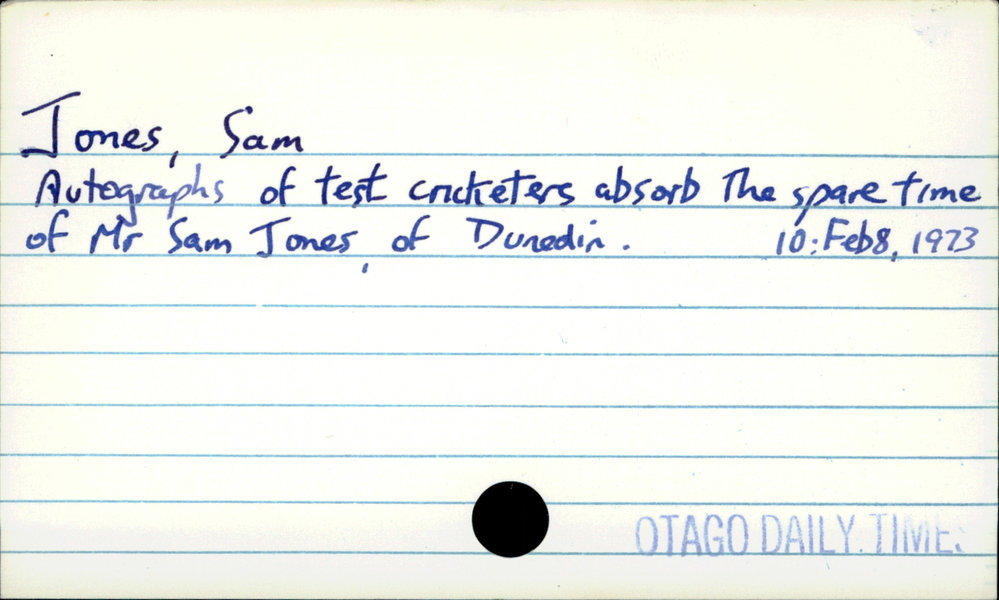 Jones, Sam
Autographs of test cricketers absorb the spare time
of Mr Sam Jones, of Dunedin. 10: Feb 8, 1973
OTAGO DAILY TIMES